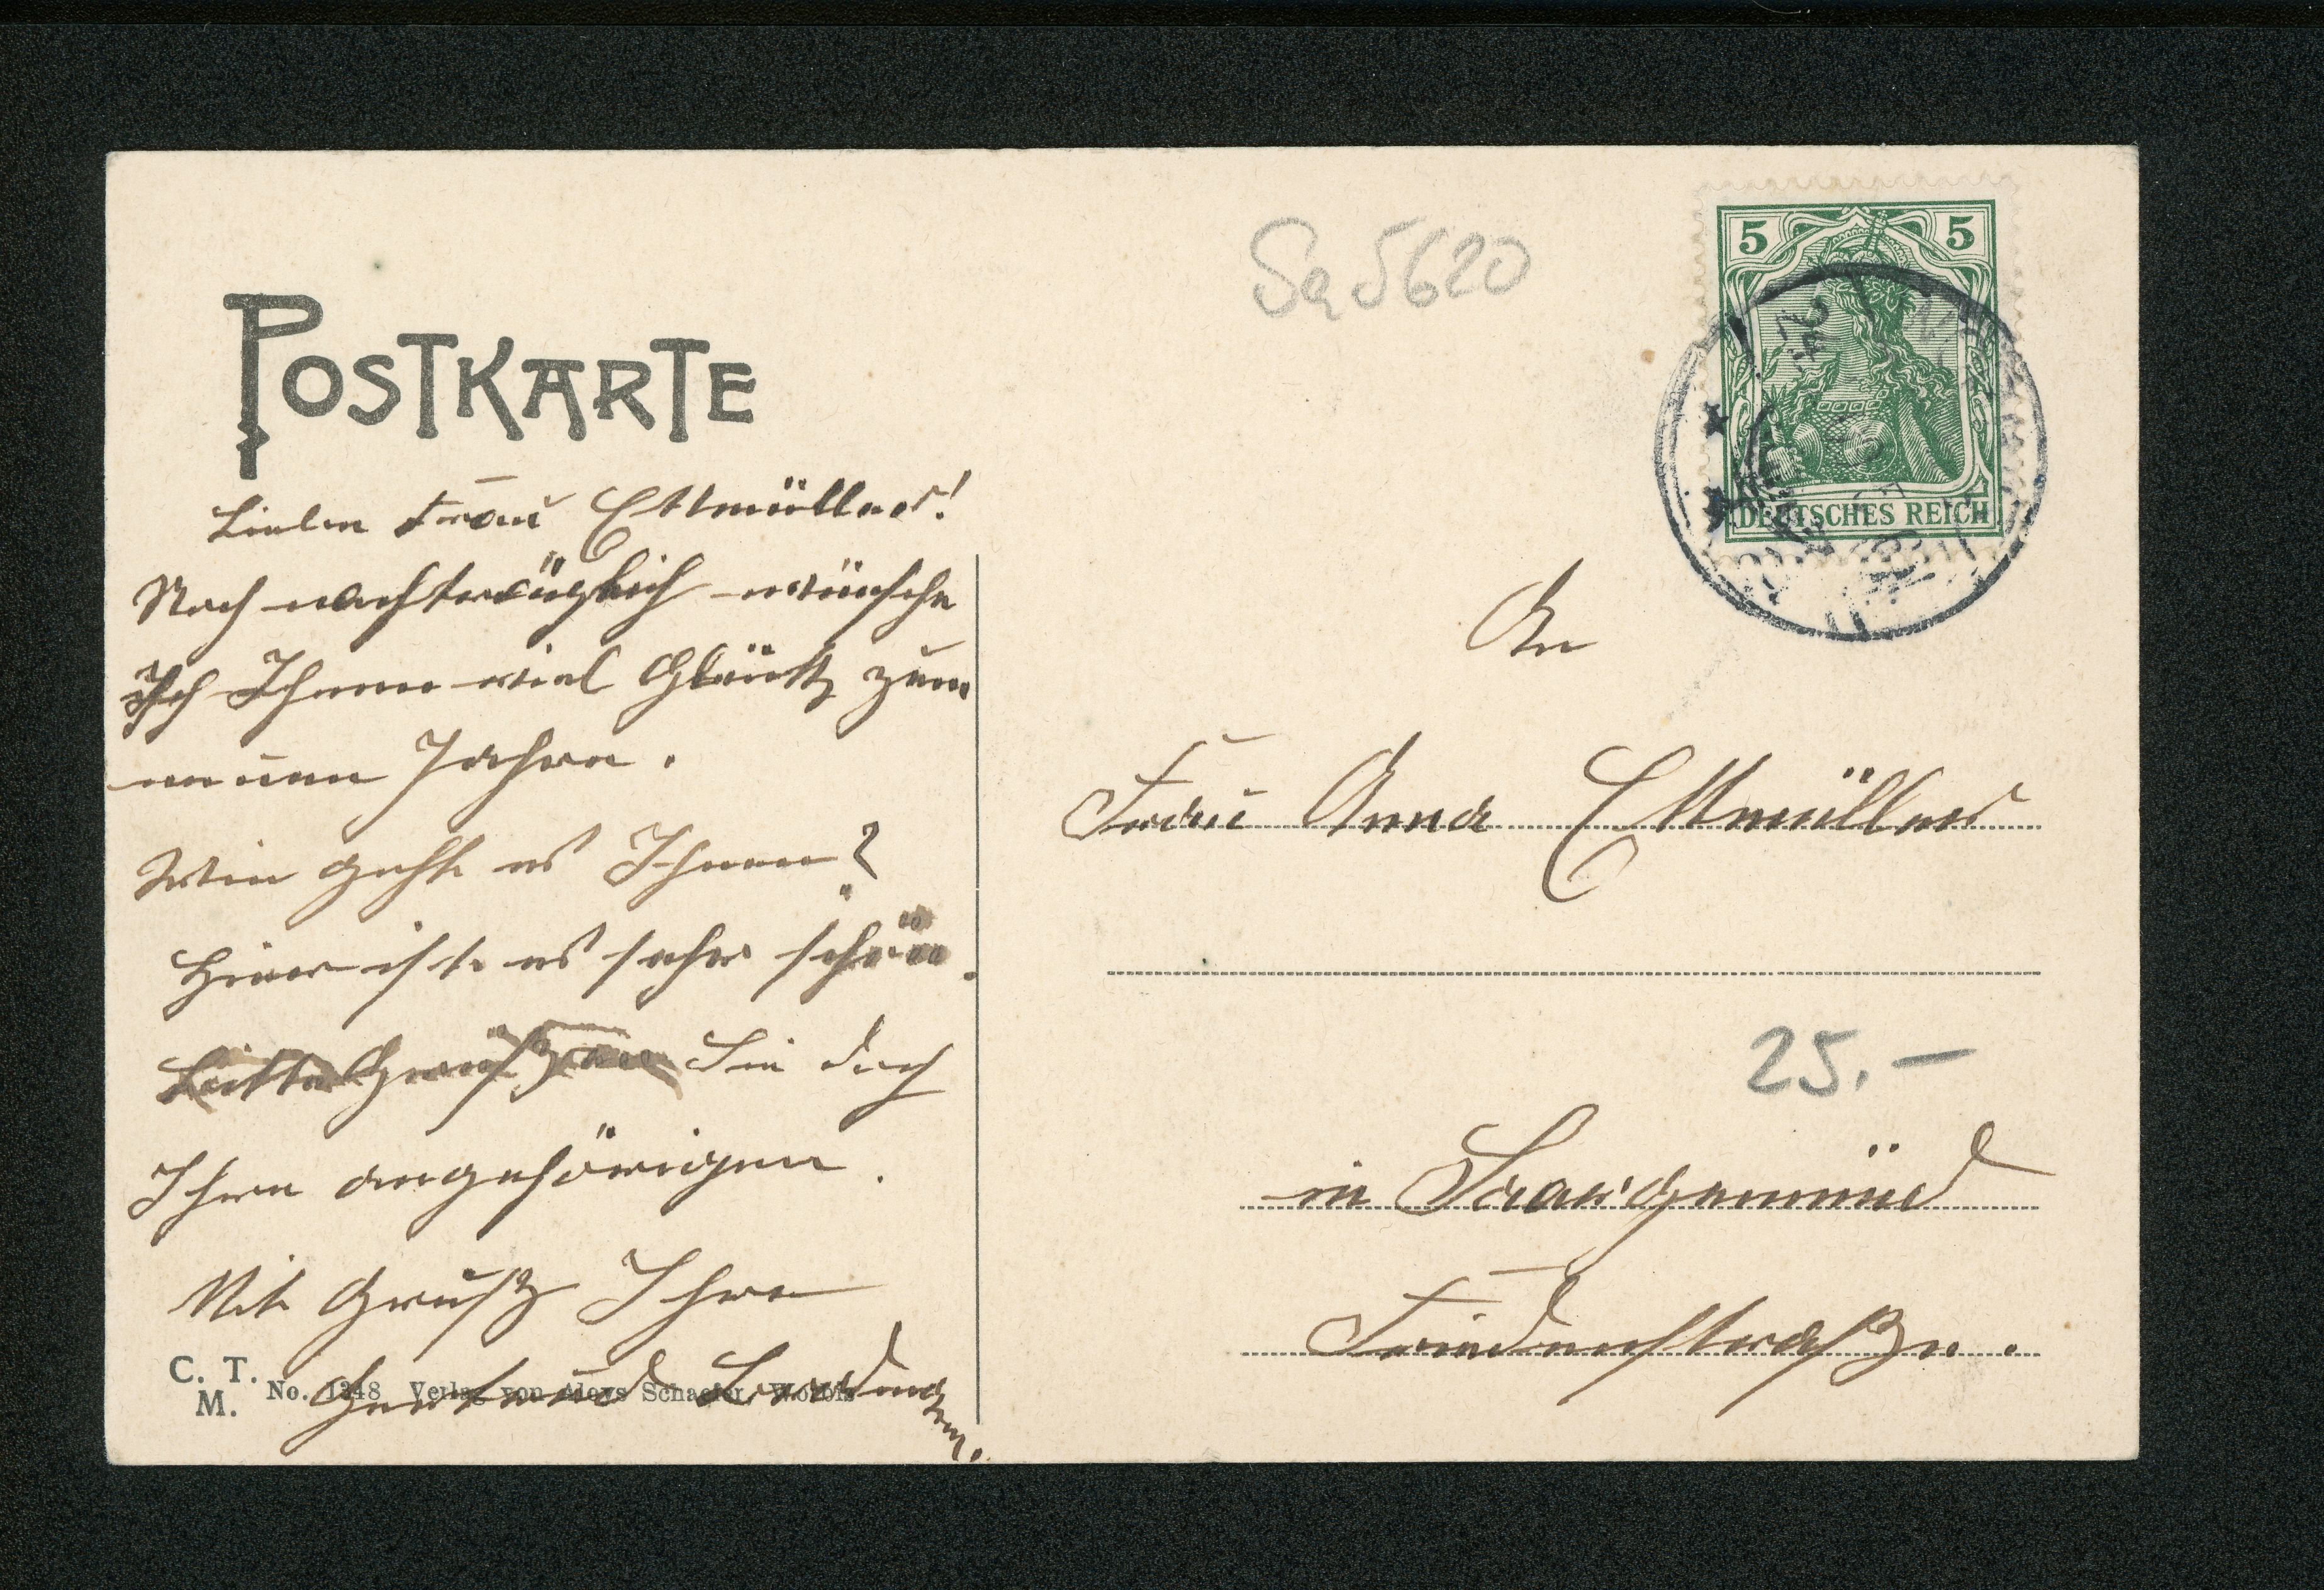 POSTKARTE
Sa 5620
5 5
DEUTSCHES REICH
Liebe Frau Ettmüller!
Noch nachträglich wünsche
Ich Ihnen viel Glück zum
neuen Jahre.
Wie geht es Ihnen?
Hier ist es sehr schön.
Bitte Grüßen Sie doch
Ihre angehörigen.
Mit Gruß Ihre
Gertrud
C. T. M. No. 1348 Verlag von Aloys Schaefer, Worbis
An
Frau Anna Ettmüller
25.–
in Saargemünd
Friedenstraße.